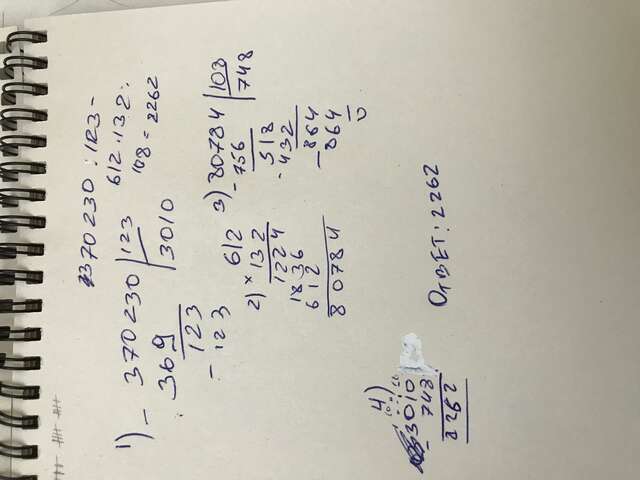 370230 : 123 -
612 · 132 :
108 = 2262
1) - 370230 | 123
369 | 3010
123
- 123
2) × 612
132
1224
1836
612
80784
3) 80784 | 108
- 756 | 748
518
- 432
864
- 864
0
4)
- 3010
748
2262
ОТВЕТ: 2262